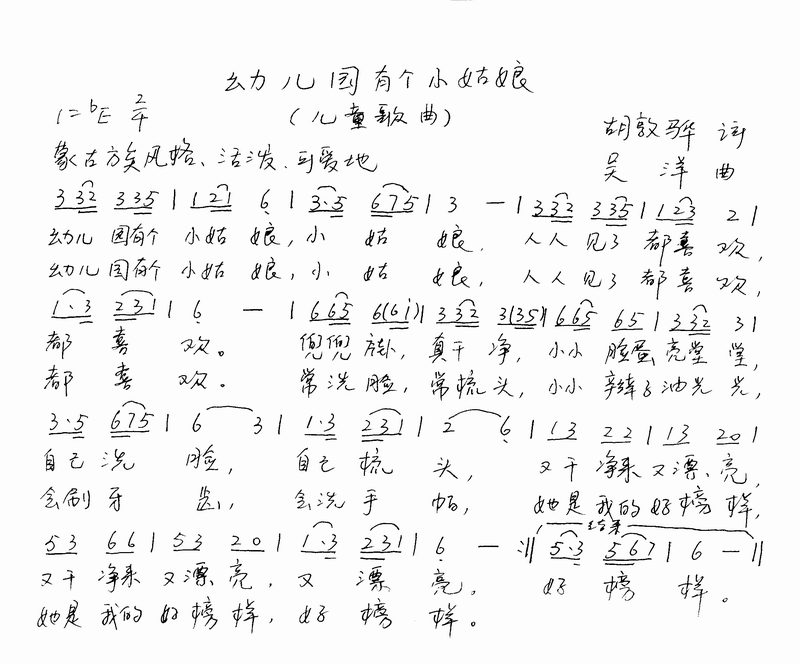 幼儿园有个小姑娘
1=bE 2/4 (儿童歌曲) 胡敦骅 词
蒙古族风格、活泼、可爱地 吴洋 曲
3 32 335 | 121 6 | 3·5 675 | 3 — | 332 335 | 123 2 |
幼儿园有个 小姑娘, 小姑娘, 人人见了都喜欢,
幼儿园有个 小姑娘, 小姑娘, 人人见了都喜欢,
1·3 231 | 6 — | 665 6(6i) | 332 3(35) | 665 65 | 332 3 |
都喜欢。 兜兜, 真干净, 小小脸蛋亮堂堂,
都喜欢。 常洗脸, 常梳头, 小小辫子油光光,
3·5 675 | 6 3 | 1·3 231 | 2 6 | 13 22 | 13 20 |
自己洗脸, 自己梳头, 又干净来又漂亮,
会刷牙齿, 会洗手帕, 她是我的好榜样,
53 66 | 53 20 | 1·3 231 | 6 — :|| 结束 5·3 567 | 6 — ||
又干净来又漂亮, 又漂亮, 好榜样。
她是我的好榜样, 好榜样。